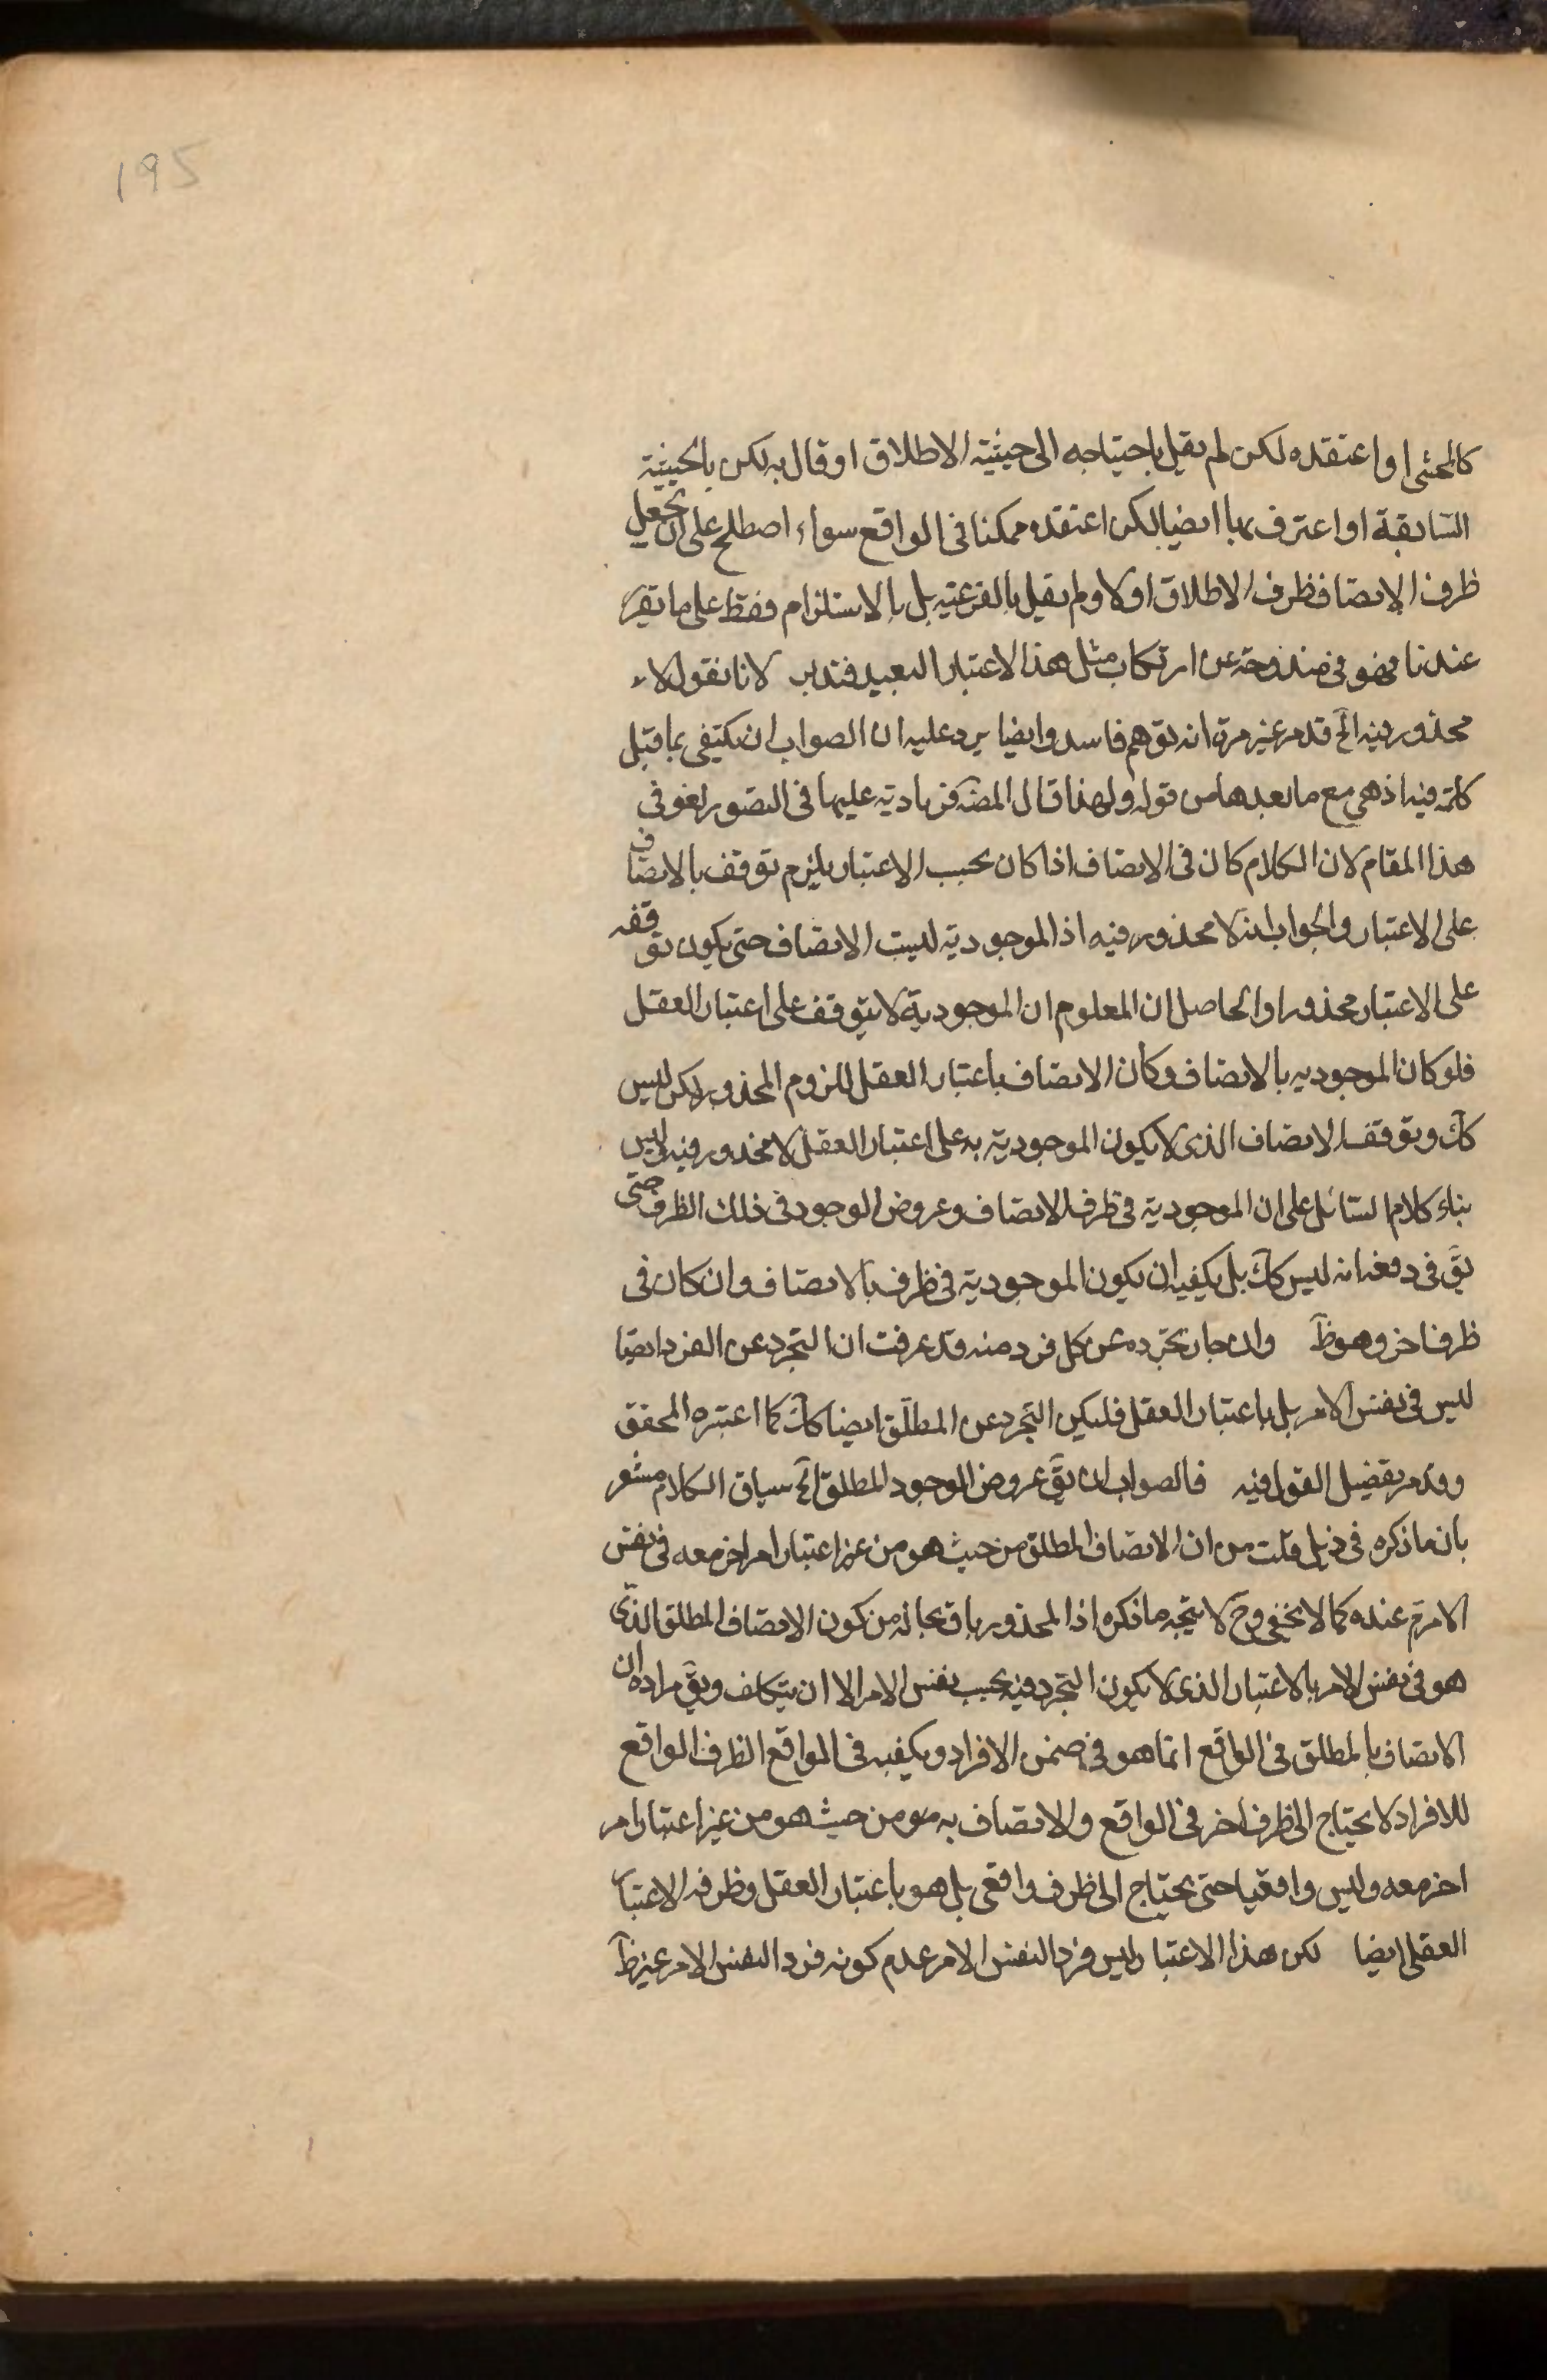 195
كالمحشى او اعتقده لكن لم يقل باحتياجه الى حيثية الاطلاق او قال به لكن بالحيثية
السابقة او اعترف بها ايضا لكن اعتقده ممكنا فى الواقع سواء اصطلح على ان يجعل
ظرف الاتصاف ظرف الاطلاق اولا ولم يقل بالفرعية بل بالاستلزام فقط على ما تقرر
عندنا فهو فى مندوحة عن ارتكاب مثل هذا الاعتبار البعيد فتدبر لانا نقول لا
محذور فيه الخ قد مر غير مرة انه توهم فاسد وايضا يرد عليه ان الصواب ان يكتفى بما قبل
كلمة فيه اذ هى مع ما بعدها من قوله ولهذا قال المصـ فزيادته عليها فى التصور لغو فى
هذا المقام لان الكلام كان فى الاتصاف اذا كان بحسب الاعتبار يلزم توقف بالاتصاف
على الاعتبار والجواب انه لا محذور فيه اذ الموجودية ليست الاتصاف حتى يكون توقفه
على الاعتبار محذورا والحاصل ان المعلوم ان الموجودية لا يتوقف على اعتبار العقل
فلو كان الموجودية بالاتصاف وكان الاتصاف باعتبار العقل للزوم المحذور لكن ليس
كك وتوقف الاتصاف الذى لا يكون الموجودية به على اعتبار العقل لا محذور فيه وليس
بناء كلام السائل على ان الموجودية فى ظرف الاتصاف وعروض الوجود فى ذلك الظرف حتى
يقَ فى دفعه انه ليس كك بل يكفيه ان يكون الموجودية فى ظرف بالاتصاف وان كان فى
ظرف اخر وهو ظَ وان جاز تجرده عن كل فرد منه قد عرفت ان التجرد عن الفرد ايضا
ليس فى نفس الامر بل باعتبار العقل فليكن التجرد عن المطلق ايضا كك كما اعتبره المحقق
وقد مر تفصيل القول فيه فالصواب ان يقَ عروض الوجود المطلق الخ سياق الكلام مشعر
بان ما ذكره فى ذيل قلت من ان الاتصاف المطلق من حيث هو من غير اعتبار امر اخر معه فى نفس
الامر تم عنده كما لا يخفى وح لا يتجه ما ذكره اذ المحذور باق بحاله من كون الاتصاف المطلق الذى
هو فى نفس الامر بالاعتبار الذى لا يكون التجرد فيه بحسب نفس الامر الا ان يتكلف ويقَ مراده ان
الاتصاف بالمطلق فى الواقع انما هو فى ضمن الافراد ويكفيه فى الواقع الظرف الواقع
للافراد لا يحتاج الى ظرف اخر فى الواقع والاتصاف به من حيث هو من غير اعتبار امر
اخر معه وليس واقعيا حتى يحتاج الى ظرف واقعى بل هو باعتبار العقل وظرفه الاعتبار
العقلى ايضا لكن هذا الاعتبار ليس فردا لنفس الامر عدم كونه فردا لنفس الامر غير ظَ